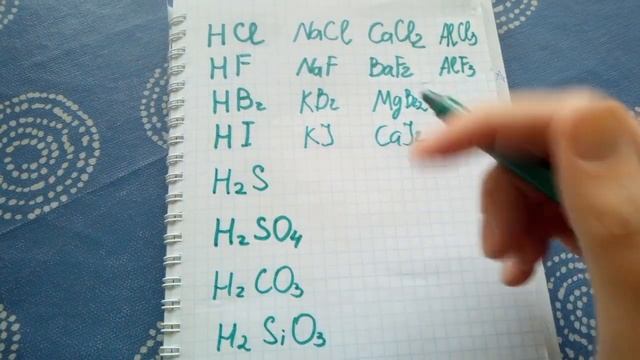 HCl NaCl CaCl₂ AlCl₃
HF NaF BaF₂ AlF₃
HBr KBr MgBr₂
HI KJ CaJ₂
H₂S
H₂SO₄
H₂CO₃
H₂SiO₃